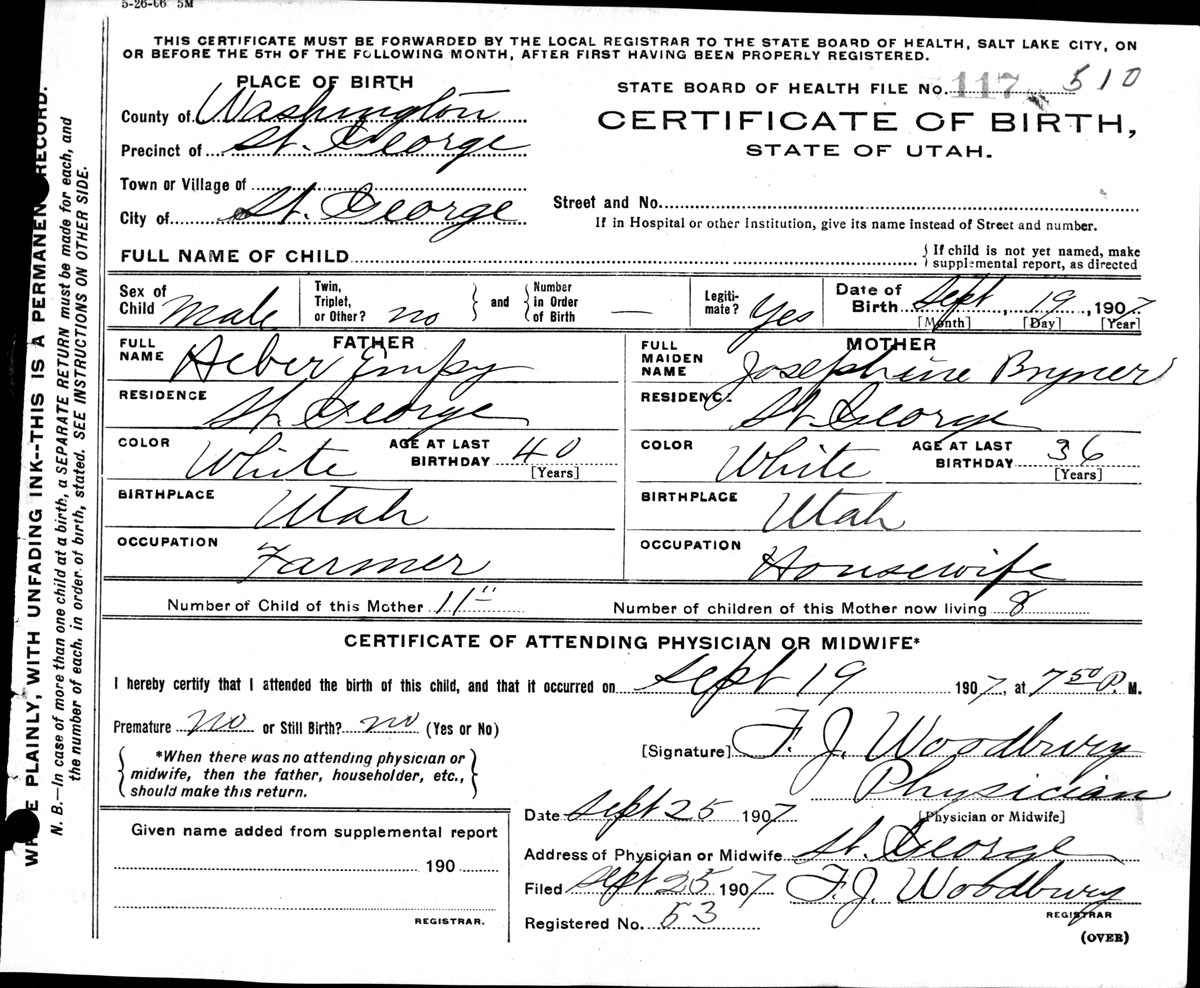 5-26-06 5M
THIS CERTIFICATE MUST BE FORWARDED BY THE LOCAL REGISTRAR TO THE STATE BOARD OF HEALTH, SALT LAKE CITY, ON
OR BEFORE THE 5TH OF THE FOLLOWING MONTH, AFTER FIRST HAVING BEEN PROPERLY REGISTERED.
PLACE OF BIRTH
County of Washington
Precinct of St. George
Town or Village of
City of St. George
STATE BOARD OF HEALTH FILE No. 117 510
CERTIFICATE OF BIRTH,
STATE OF UTAH.
Street and No.
If in Hospital or other Institution, give its name instead of Street and number.
FULL NAME OF CHILD
If child is not yet named, make
supplemental report, as directed
Sex of Child Male
Twin, Triplet, or Other? no
and Number in Order of Birth —
Legiti-mate? Yes
Date of Birth Sept, 19, 1907
[Month] [Day] [Year]
FATHER
FULL NAME Heber Empy
RESIDENCE St. George
COLOR White AGE AT LAST BIRTHDAY 40
[Years]
BIRTHPLACE Utah
OCCUPATION Farmer
MOTHER
FULL MAIDEN NAME Josephine Bryner
RESIDENCE St George
COLOR White AGE AT LAST BIRTHDAY 36
[Years]
BIRTHPLACE Utah
OCCUPATION Housewife
Number of Child of this Mother 11" Number of children of this Mother now living 8
CERTIFICATE OF ATTENDING PHYSICIAN OR MIDWIFE*
I hereby certify that I attended the birth of this child, and that it occurred on Sept 19 1907, at 7 50 P. M.
Premature no or Still Birth? no (Yes or No)
*When there was no attending physician or
midwife, then the father, householder, etc.,
should make this return.
[Signature] F. J. Woodbury
Physician
[Physician or Midwife]
Date Sept 25 1907
Address of Physician or Midwife St. George
Filed Sept 25 1907 F. J. Woodbury
REGISTRAR
Registered No. 53
(OVER)
Given name added from supplemental report
190
REGISTRAR.
PLAINLY, WITH UNFADING INK--THIS IS A PERMANENT RECORD.
N. B.—In case of more than one child at a birth, a SEPARATE RETURN must be made for each, and
the number of each, in order of birth, stated. SEE INSTRUCTIONS ON OTHER SIDE.